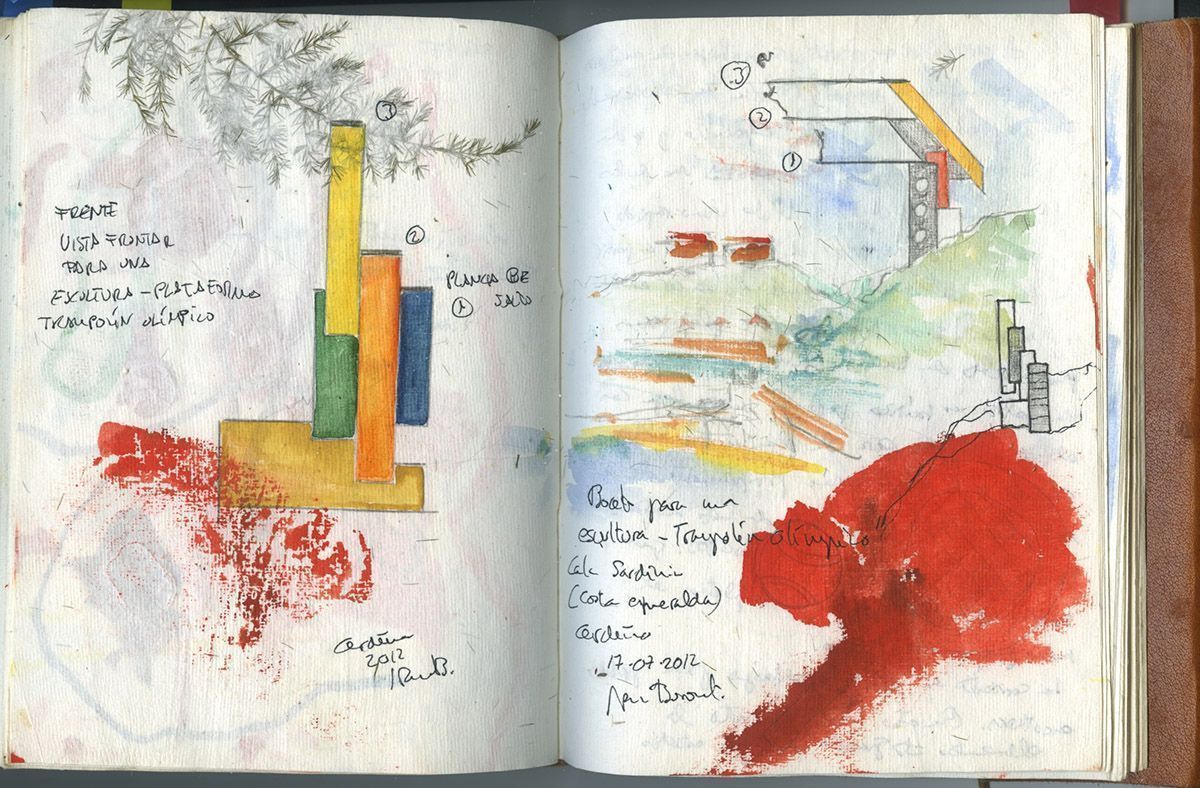 ③
②
FRENTE
VISTA FRONTAR
PARA UNA
ESCULTURA - PLATAFORMA
TRAMPOLÍN OLÍMPICO
PLANCHA DE
① SALTO
Cerdeña
2012
③
②
①
Boceto para una
escultura - Trampolín olímpico
Cala
(Costa esmeralda)
Cerdeña
17-07-2012